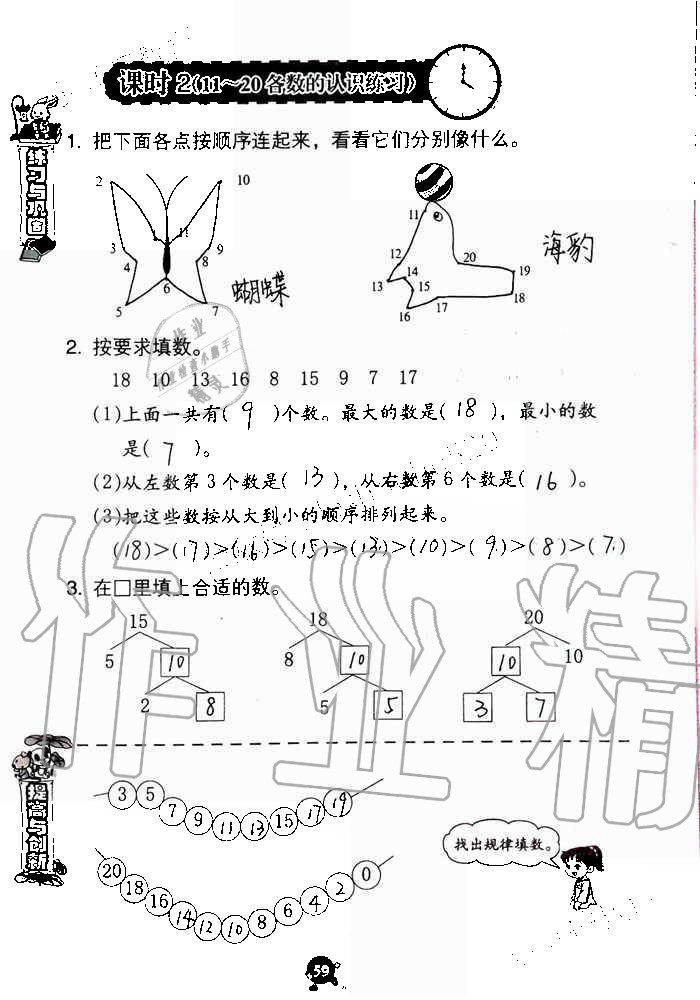 课时 2(11～20 各数的认识练习)
练习与巩固
1. 把下面各点按顺序连起来，看看它们分别像什么。
2 10 11 3 9 4 8 6 5 7
蝴蝶
11 12 20 19 13 14 15 18 17 16
海豹
2. 按要求填数。
18 10 13 16 8 15 9 7 17
(1)上面一共有( 9 )个数。最大的数是( 18 )，最小的数
是( 7 )。
(2)从左数第 3 个数是( 13 )，从右数第 6 个数是( 16 )。
(3)把这些数按从大到小的顺序排列起来。
(18)>(17)>(16)>(15)>(13)>(10)>(9)>(8)>(7)
3. 在□里填上合适的数。
15 18 20
5 10 8 10 10 10
2 8 5 5 3 7
提高与创新
3 5 7 9 11 13 15 17 19
找出规律填数。
20 18 16 14 12 10 8 6 4 2 0
59
作业精